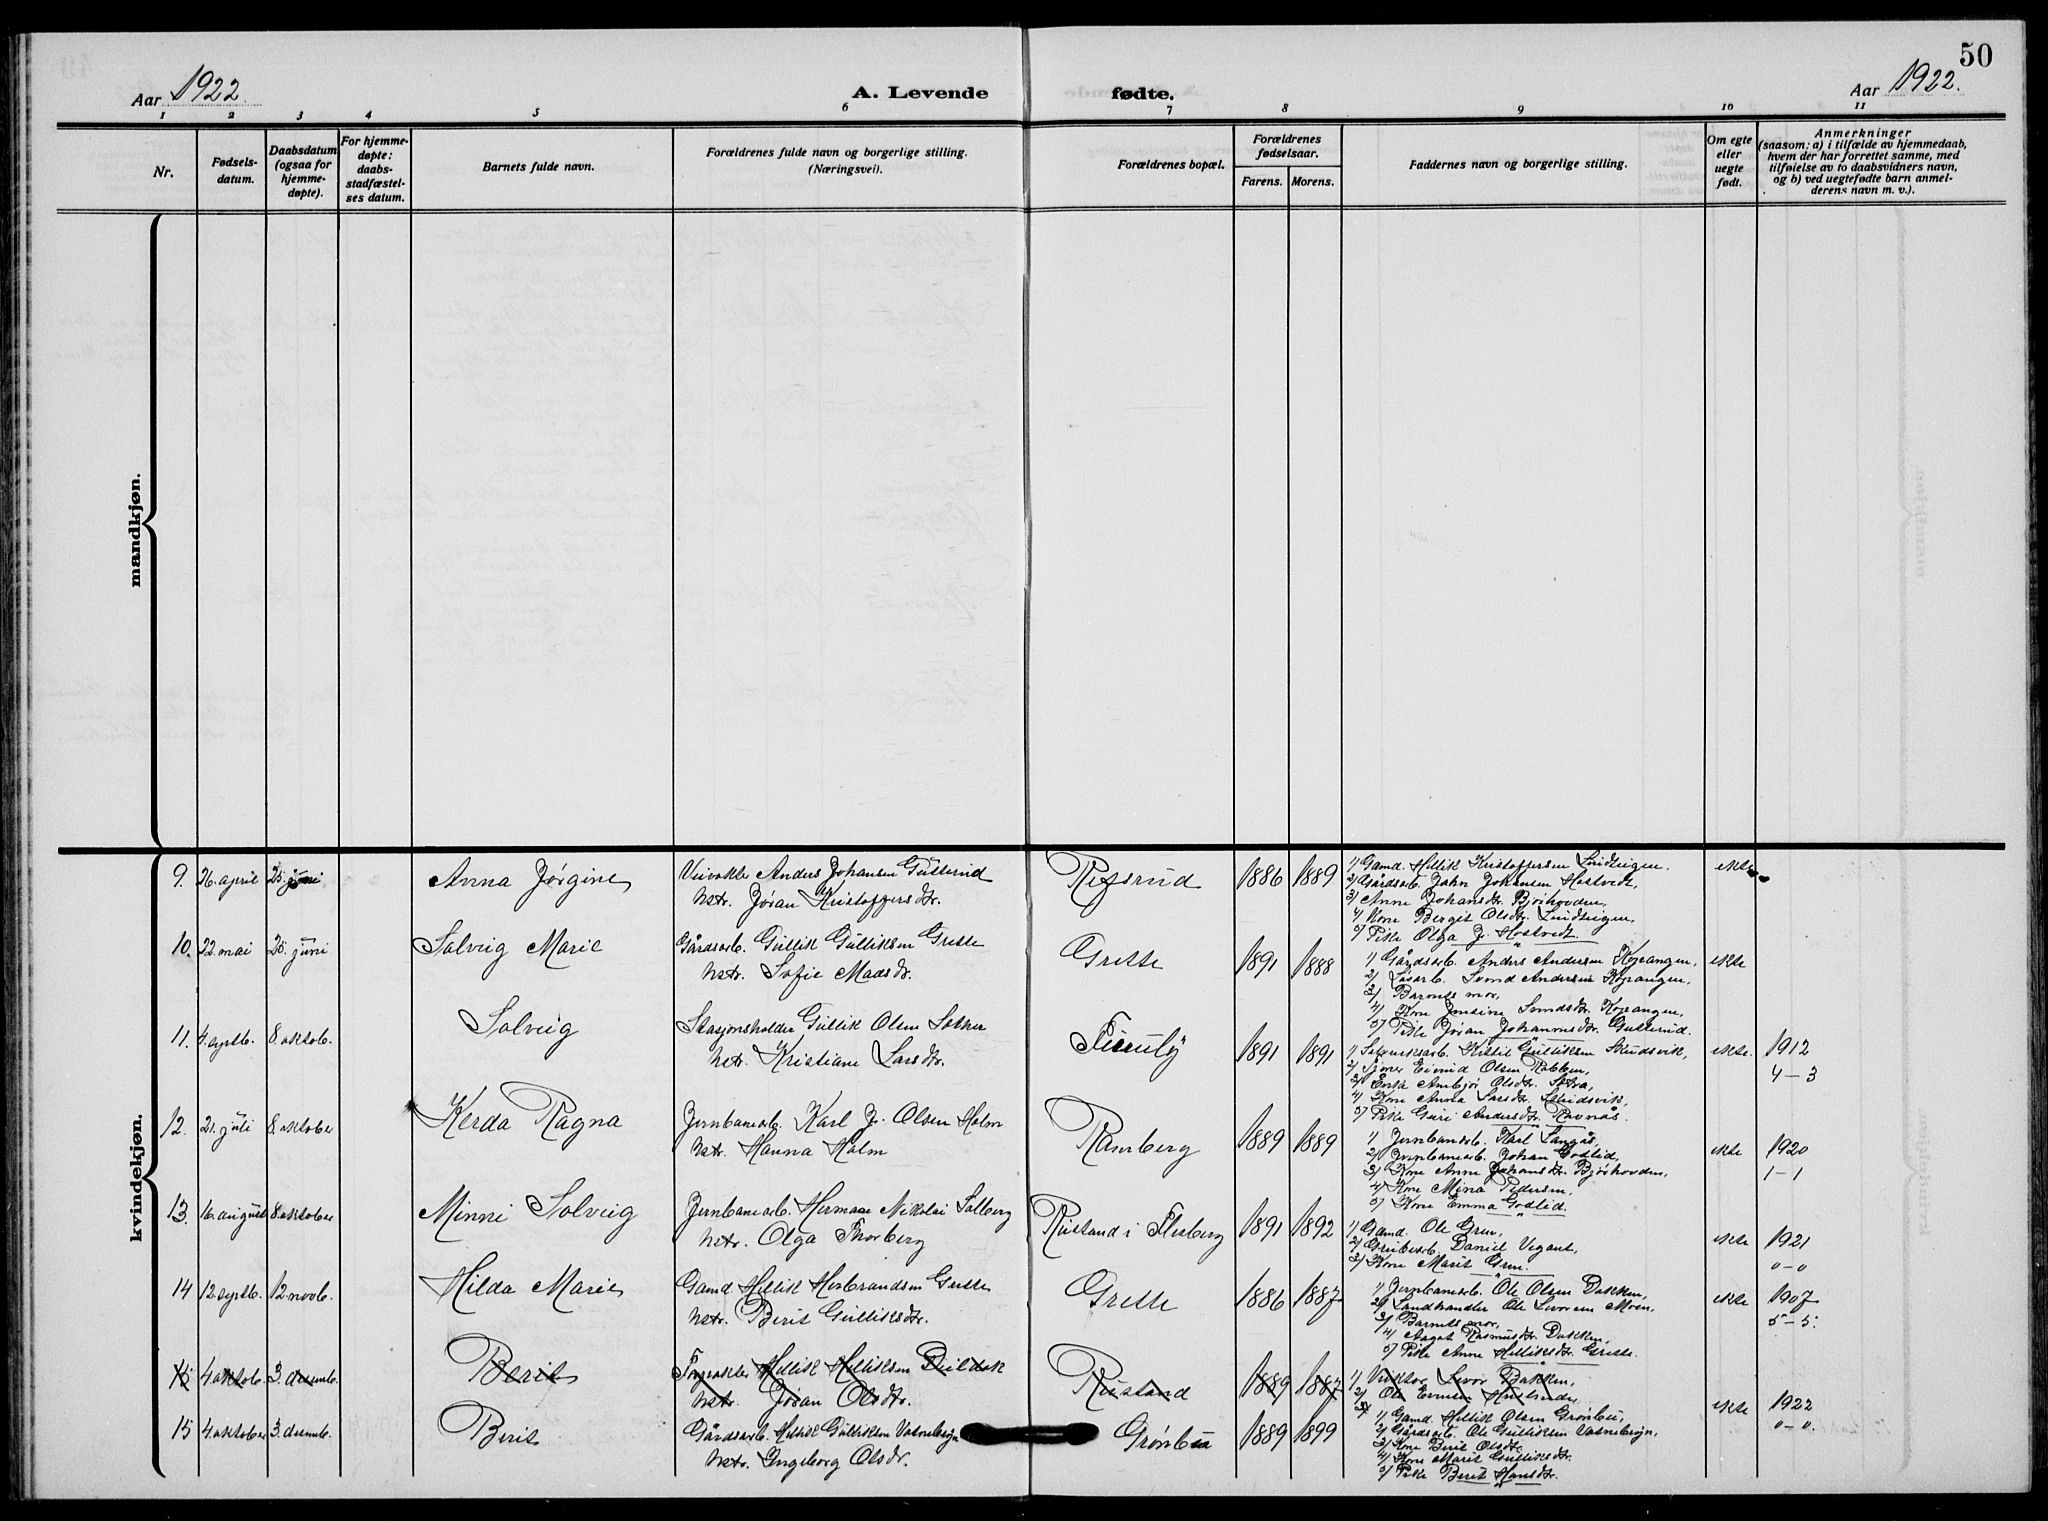 50
Aar 1922.
A. Levende
fødte.
Aar 1922.
1 2 3 4 5 6 7 8 9 10 11
Nr.
Fødsels-
datum.
Daabsdatum
(ogsaa for
hjemme-
døpte).
For hjemme-
døpte:
daabs-
stadfæstel-
ses datum.
Barnets fulde navn.
Forældrenes fulde navn og borgerlige stilling.
(Næringsvei).
Forældrenes bopæl.
Forældrenes
fødselsaar.
Farens. Morens.
Faddernes navn og borgerlige stilling.
Om egte
eller
uegte
født.
Anmerkninger
(saasom: a) i tilfælde av hjemmedaab,
hvem der har forrettet samme, med
tilføielse av to daabsvidners navn,
og b) ved uegtefødte barn anmel-
derens navn m. v.).
mandkjøn.
kvindekjøn.
9. 26. april 25. juni Anna Jørgine
Veivokter Anders Johansen Gutterud
hstr. Jøran Kristoffersdtr.
Refsrud 1886 1889
1) Gamd. Hellik Kristoffersen
2) Gårdsarb. John Johansen Hostvedt,
3) Anne Johansdtr. Bjørhovden,
4) Kone Bergit Olsdtr.
5) Pike Olga J. Hostvedt.
ekte
10. 22. mai 25. juni Solveig Marie
Gårdsarb. Gullik Gulliksen Grette
hstr. Sofie Madsdtr.
Grette 1891 1888
1) Gårdsarb. Anders Andersen Kopangen,
2) Løsarb. Svend Andersen Kopangen,
3) Barnets mor,
4) Kone Jensine Svendsdtr. Kopangen,
5) Pike Jøran Johannesdtr. Gutterud.
ekte
11. 4. septb. 8. oktob. Solveig
Stasjonsholder Gullik Olsen Sether
hstr. Kristiane Larsdtr.
1891 1891
1) Kittil Gulliksen Skudsvik,
2) Eivind Olsen Rabben,
3) Enke Ambjør Olsdtr.
4) Kone Anna Larsdtr. Skudsvik,
5) Pike Guri Andersdtr. Ravnås.
ekte. 1912
4 – 3
12. 21. juli 8. oktober Kerda Ragna
Jernbanearb. Karl J. Olsen Holm
hstr. Hanna Holm
Ramberg 1889 1889
1) Jernbanearb. Karl Langås,
2) Jernbanearb. Johan Godlid,
3) Kone Anne Johansdtr. Bjørhovden,
4) Kone Mina Pedersen,
5) Kone Emma Godlid.
ekte 1920
1 – 1
13. 16. august 8. oktober Minni Solveig
Jernbanearb. Herman Nikolai Solberg
hstr. Olga Thorberg
Rustand i Flesberg 1891 1892
1) Gamd. Ole Gren,
2) Grubearb. Daniel Vegant,
3) Kone Marit Gren.
ekte 1921
0 – 0
14 12. septb. 12. novb. Hilda Marie
Gamd Hellik Herbrandsen Grette
hstr. Berit Gulliksdtr.
Grette 1886 1887
1) Jernbanearb. Ole Olsen Dokken,
2) Landhandler Ole Levorsen Moen,
3) Barnets mor,
4) Aagot Rasmusdtr. Dokken,
5) Pike Anne Helliksdtr. Grette.
ekte 1907
5 – 5.
15 4. oktob. 3. desemb. Berit
Hellik Helliksen
hstr. Jøran Olsdtr.
Rustand 1889 1887
1) Levor Bakken,
2) Ole Evensen
3)
15 4. oktober 3. desemb. Berit
Gårdsarb. Hellik Gulliksen Vatnebryn
hstr. Ingeborg Olsdtr.
Grønbu 1889 1899
1) Gamd. Hellik Olsen Grønbu,
2) Gårdsarb. Ole Gulliksen Vatnebryn,
3) Kone Berit Olsdtr.
4) Kone Marit Gulliksdtr.
5) Pike Berit Hansdtr.
ekte 1922
0 – 0.